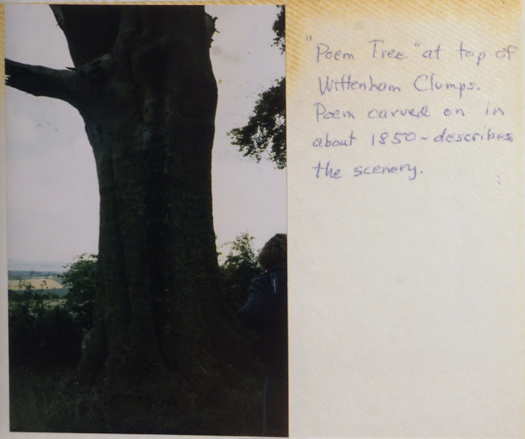 "Poem Tree" at top of
Wittenham Clumps.
Poem carved on in
about 1850 - describes
the scenery.